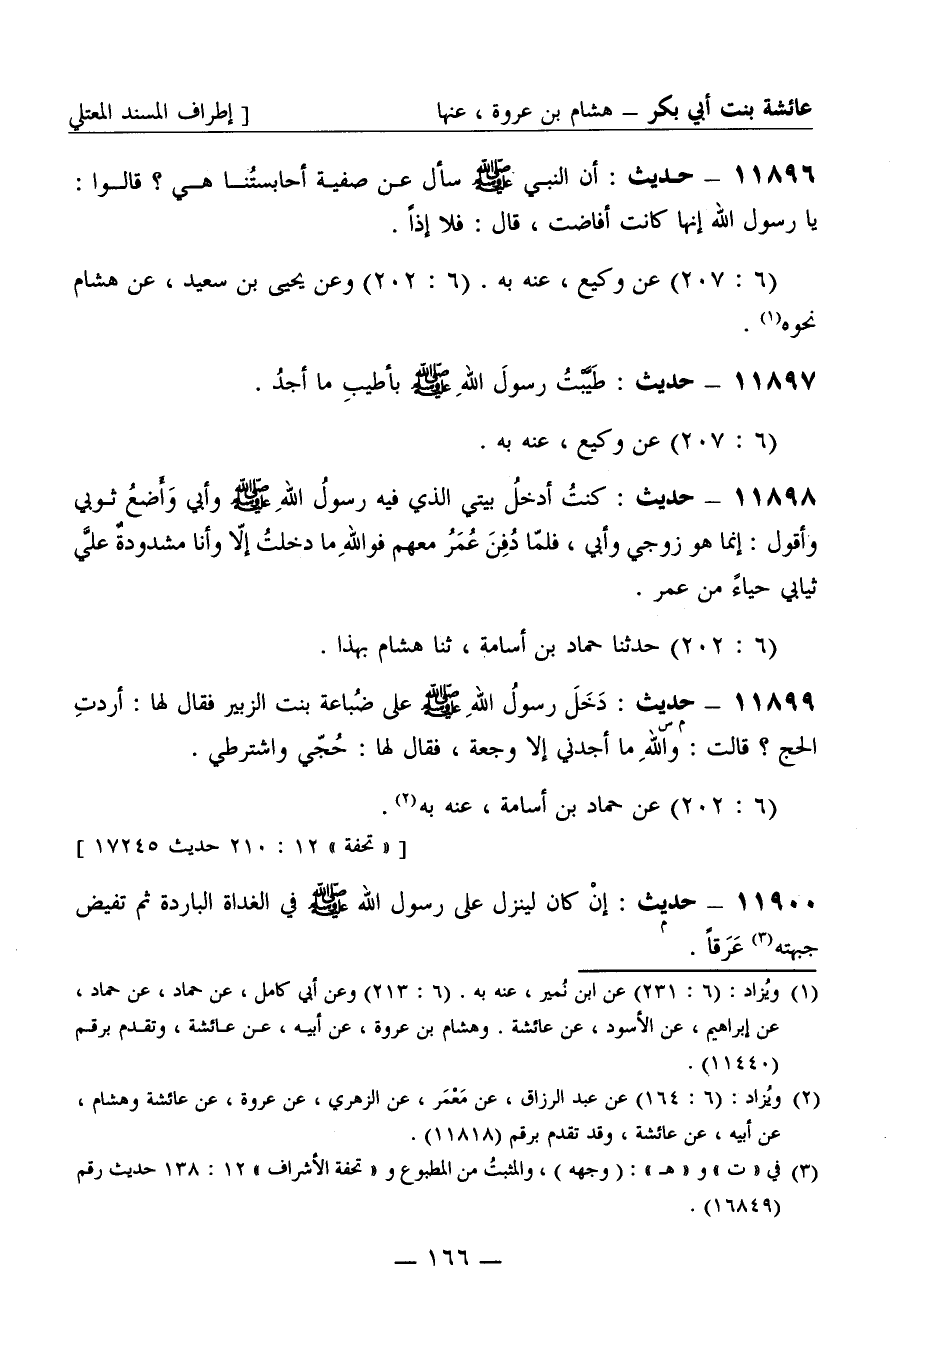 عائشة بنت أبي بكر – هشام بن عروة ، عنها [ إطراف المسند المعتلي
١١٨٩٦ – حديث : أن النبي ﷺ سأل عن صفية أحابستُنا هي ؟ قالوا :
يا رسول الله إنها كانت أفاضت ، قال : فلا إذاً .
(٦ : ٢٠٧) عن وكيع ، عنه به . (٦ : ٢٠٢) وعن يحيى بن سعيد ، عن هشام
نحوه(١) .
١١٨٩٧ – حديث : طَيَّبْتُ رسولَ اللهِ ﷺ بأطيبِ ما أجدُ .
(٦ : ٢٠٧) عن وكيع ، عنه به .
١١٨٩٨ – حديث : كنتُ أدخلُ بيتي الذي فيه رسولُ اللهِ ﷺ وأبي وَأَضعُ ثوبي
وأقول : إنما هو زوجي وأبي ، فلمّا دُفِنَ عُمَرُ معهم فواللهِ ما دخلتُ إلّا وأنا مشدودةٌ عليَّ
ثيابي حياءً من عمر .
(٦ : ٢٠٢) حدثنا حماد بن أسامة ، ثنا هشام بهذا .
١١٨٩٩ – حديث : دَخَلَ رسولُ اللهِ ﷺ على ضُباعة بنت الزبير فقال لها : أردتِ
الحج ؟ قالت : واللهِ ما أجدني إلا وجعة ، فقال لها : حُجّي واشترطي .
(٦ : ٢٠٢) عن حماد بن أسامة ، عنه به(٢) .
[ « تحفة » ١٢ : ٢١٠ حديث ١٧٢٤٥ ]
١١٩٠٠ – حديث : إنْ كان لينزل على رسول الله ﷺ في الغداة الباردة ثم تفيض
جبهته(٣) عَرَقاً .
(١) ويُزاد : (٦ : ٢٣١) عن ابن نُمير ، عنه به . (٦ : ٢١٣) وعن أبي كامل ، عن حماد ، عن حماد ،
عن إبراهيم ، عن الأسود ، عن عائشة . وهشام بن عروة ، عن أبيه ، عن عائشة ، وتقدم برقم
(١١٤٤٠) .
(٢) ويُزاد : (٦ : ١٦٤) عن عبد الرزاق ، عن مَعْمَر ، عن الزهري ، عن عروة ، عن عائشة وهشام ،
عن أبيه ، عن عائشة ، وقد تقدم برقم (١١٨١٨) .
(٣) في « ت » و « هـ » : ( وجهه ) ، والمثبتُ من المطبوع و « تحفة الأشراف » ١٢ : ١٣٨ حديث رقم
(١٦٨٤٩) .
— ١٦٦ —